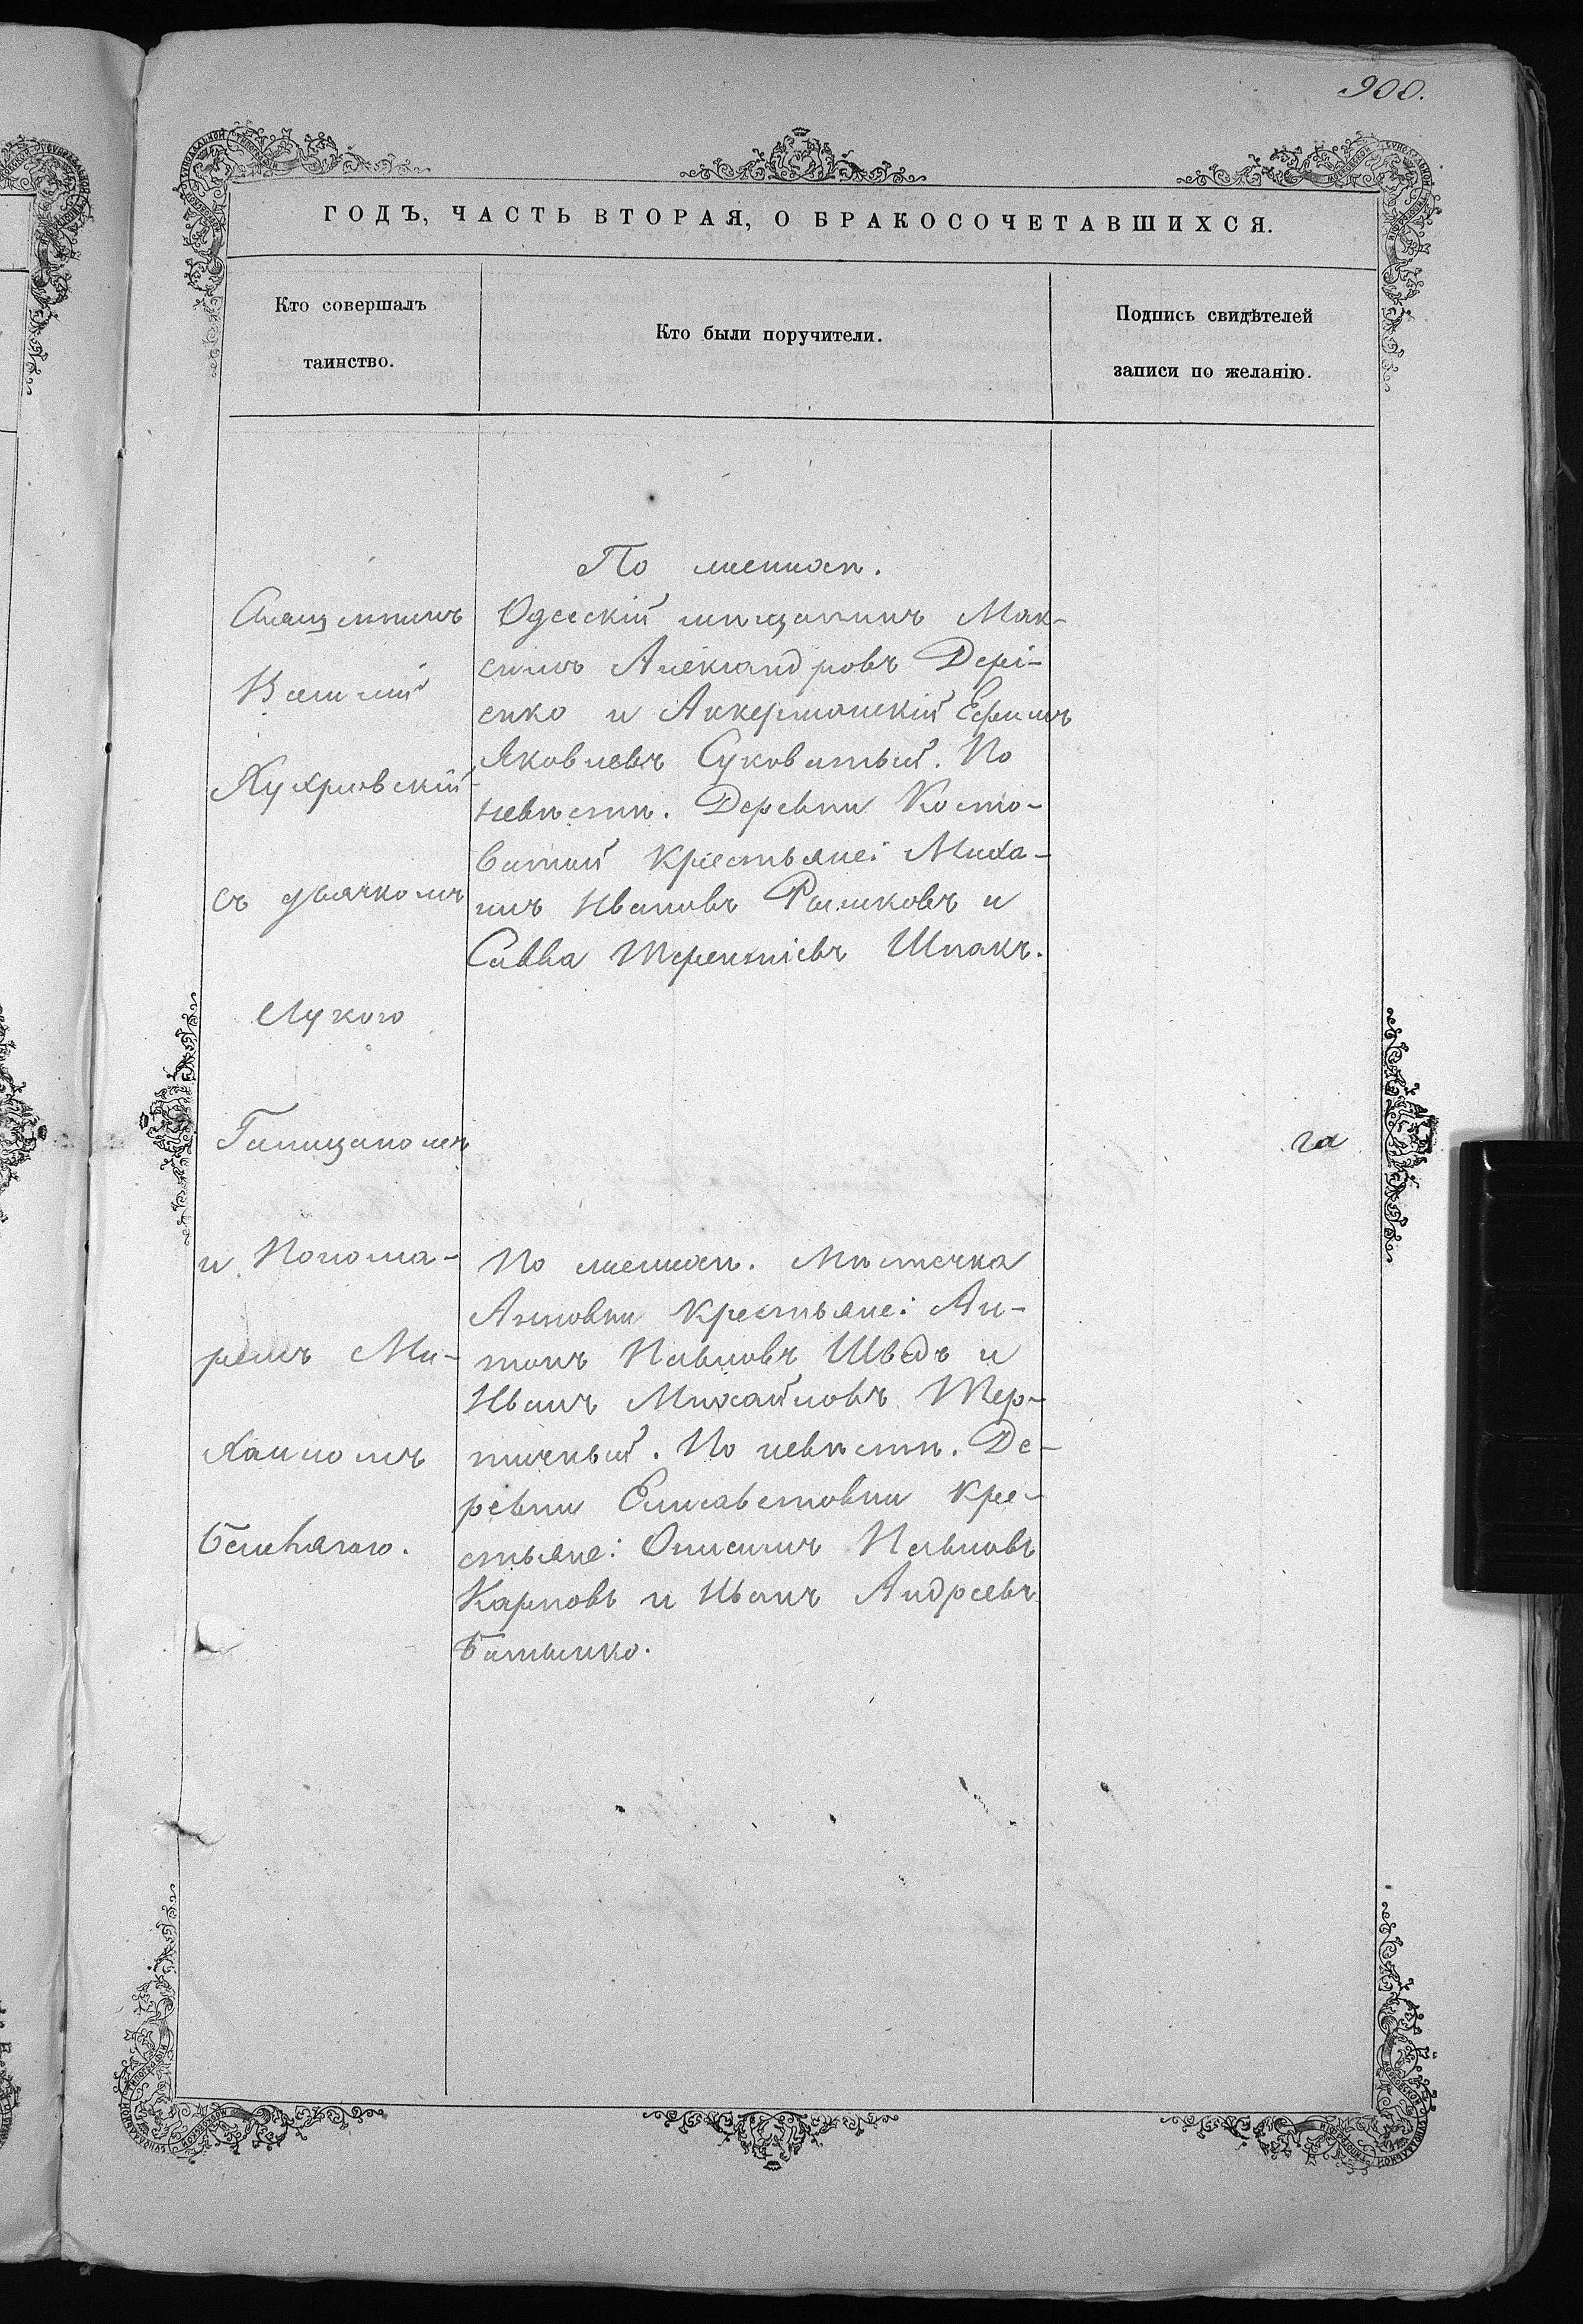 900.
ГОДЪ, ЧАСТЬ ВТОРАЯ, О БРАКОСОЧЕТАВШИХСЯ.
Кто совершалъ
таинство.
Кто были поручители.
Подпись свидѣтелей
записи по желанію.
Священникъ
Василій
Кухровскій
съ дьячкомъ
Лукою
Галицаномъ
и Понома-
ремъ Ми-
хаиломъ
По женихѣ.
Одесскій мѣщанинъ Мак-
симъ Александровъ Дері-
енко и Аккерманскій Ефимъ
Яковлевъ Суковатый. По
невѣстѣ. Деревни Косто-
ватой крестьяне: Миха-
илъ Ивановъ Рыжковъ и
Савва Терентіевъ Шпакъ.
По женихѣ. Мѣстечка
Анновки крестьяне: Ан-
тонъ Павловъ Шведъ и
Иванъ Михайловъ Тер-
пичный. По невѣстѣ. Де-
ревни Елисаветовки кре-
стьяне: Онисимъ Павловъ
Карповъ и Иванъ Андреевъ